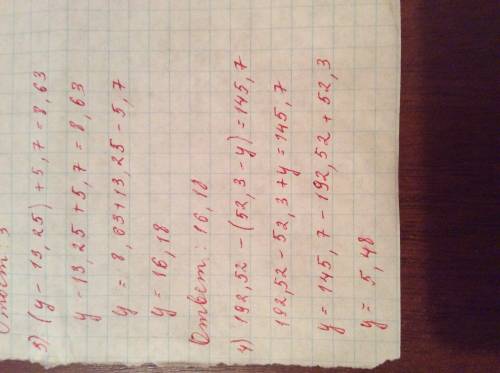 Ответ: 3
3) (y - 13,25) + 5,7 = 8,63
y - 13,25 + 5,7 = 8,63
y = 8,63 + 13,25 - 5,7
y = 16,18
Ответ: 16,18
4) 192,52 - (52,3 - y) = 145,7
192,52 - 52,3 + y = 145,7
y = 145,7 - 192,52 + 52,3
y = 5,48